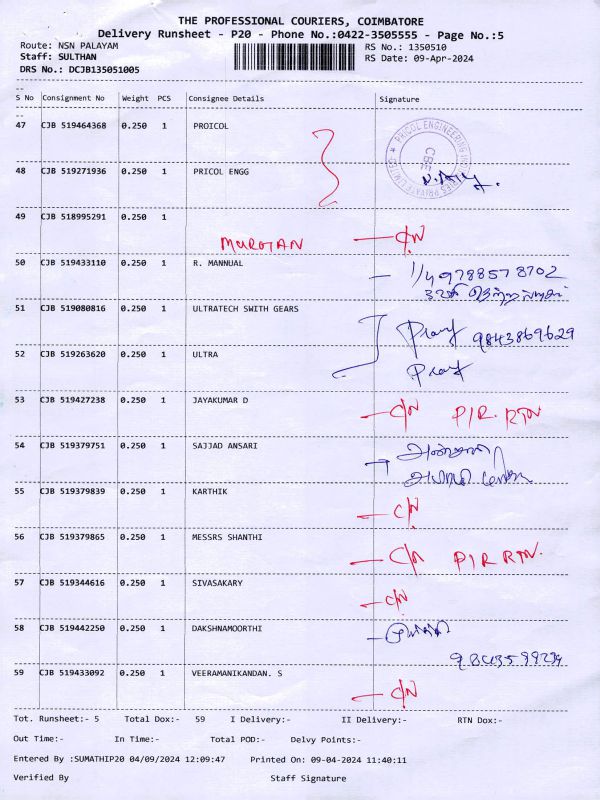 THE PROFESSIONAL COURIERS, COIMBATORE
Delivery Runsheet - P20 - Phone No.:0422-3505555 - Page No.:5
Route: NSN PALAYAM RS No.: 1350510
Staff: SULTHAN RS Date: 09-Apr-2024
DRS No.: DCJB135051005
S No Consignment No Weight PCS Consignee Details Signature
47 CJB 519464368 0.250 1 PROICOL
PRICOL ENGINEERING INDUSTRIES PRIVATE LIMITED
CBE
48 CJB 519271936 0.250 1 PRICOL ENGG
49 CJB 518995291 0.250 1
MURGIAN C/N
50 CJB 519433110 0.250 1 R. MANNUAL
9788578702
51 CJB 519080816 0.250 1 ULTRATECH SWITH GEARS
9843869629
52 CJB 519263620 0.250 1 ULTRA
53 CJB 519427238 0.250 1 JAYAKUMAR D
C/N P/R. RTN
54 CJB 519379751 0.250 1 SAJJAD ANSARI
55 CJB 519379839 0.250 1 KARTHIK
C/N
56 CJB 519379865 0.250 1 MESSRS SHANTHI
C/N P/R RTN.
57 CJB 519344616 0.250 1 SIVASAKARY
C/N
58 CJB 519442250 0.250 1 DAKSHNAMOORTHI
59 CJB 519433092 0.250 1 VEERAMANIKANDAN. S
C/N
Tot. Runsheet:- 5 Total Dox:- 59 I Delivery:- II Delivery:- RTN Dox:-
Out Time:- In Time:- Total POD:- Delvy Points:-
Entered By :SUMATHIP20 04/09/2024 12:09:47 Printed On: 09-04-2024 11:40:11
Verified By Staff Signature